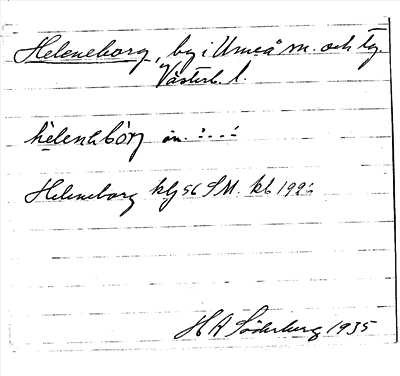 Heleneborg, by i Umeå sn. och tg.
Västerb. l.
helenebórj
Heleneborg kbj 56 SM. kb
H A Söderberg 1935